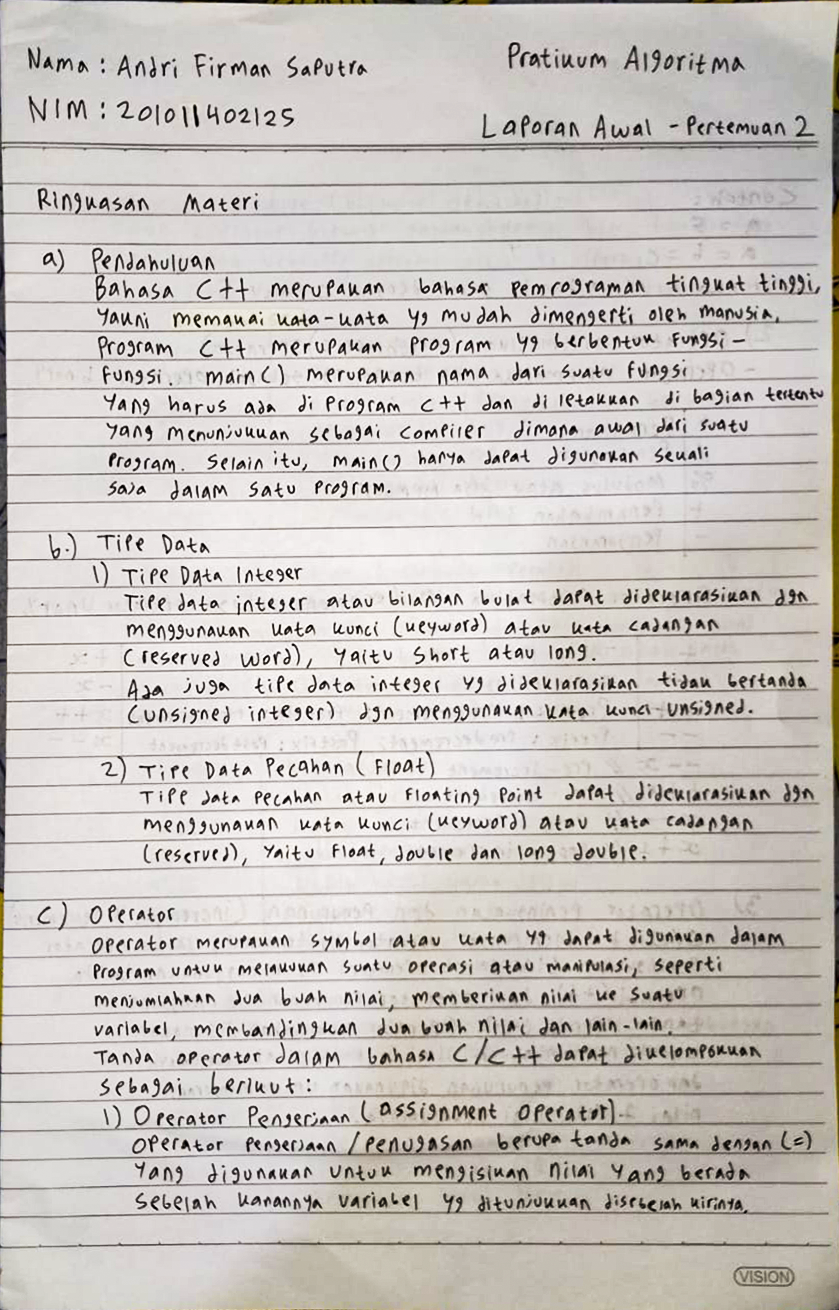 Nama : Andri Firman Saputra
Pratikum Algoritma
NIM : 201011402125
Laporan Awal - Pertemuan 2
Ringkasan Materi
a) Pendahuluan
Bahasa C++ merupakan bahasa pemrograman tingkat tinggi,
yakni memakai kata-kata yg mudah dimengerti oleh manusia.
Program C++ merupakan program yg berbentuk fungsi-
fungsi. main() merupakan nama dari suatu fungsi
yang harus ada di program C++ dan di letakkan di bagian tertentu
yang menunjukkan sebagai compiler dimana awal dari suatu
program. Selain itu, main() hanya dapat digunakan sekali
saja dalam satu program.
b.) Tipe Data
1) Tipe Data Integer
Tipe data integer atau bilangan bulat dapat dideklarasikan dgn
menggunakan kata kunci (keyword) atau kata cadangan
(reserved word), yaitu short atau long.
Ada juga tipe data integer yg dideklarasikan tidak bertanda
(unsigned integer) dgn menggunakan kata kunci unsigned.
2) Tipe Data Pecahan (Float)
Tipe data pecahan atau floating point dapat dideklarasikan dgn
menggunakan kata kunci (keyword) atau kata cadangan
(reserved), yaitu float, double dan long double.
C) Operator
Operator merupakan symbol atau kata yg dapat digunakan dalam
program untuk melakukan suatu operasi atau manipulasi, seperti
menjumlahkan dua buah nilai, memberikan nilai ke suatu
variabel, membandingkan dua buah nilai dan lain-lain.
Tanda operator dalam bahasa C/C++ dapat dikelompokkan
sebagai berikut :
1) Operator Pengerjaan (assignment operator).
Operator pengerjaan / penugasan berupa tanda sama dengan (=)
yang digunakan untuk mengisikan nilai yang berada
sebelah kanannya variabel yg ditunjukkan disebelah kirinya.
VISION